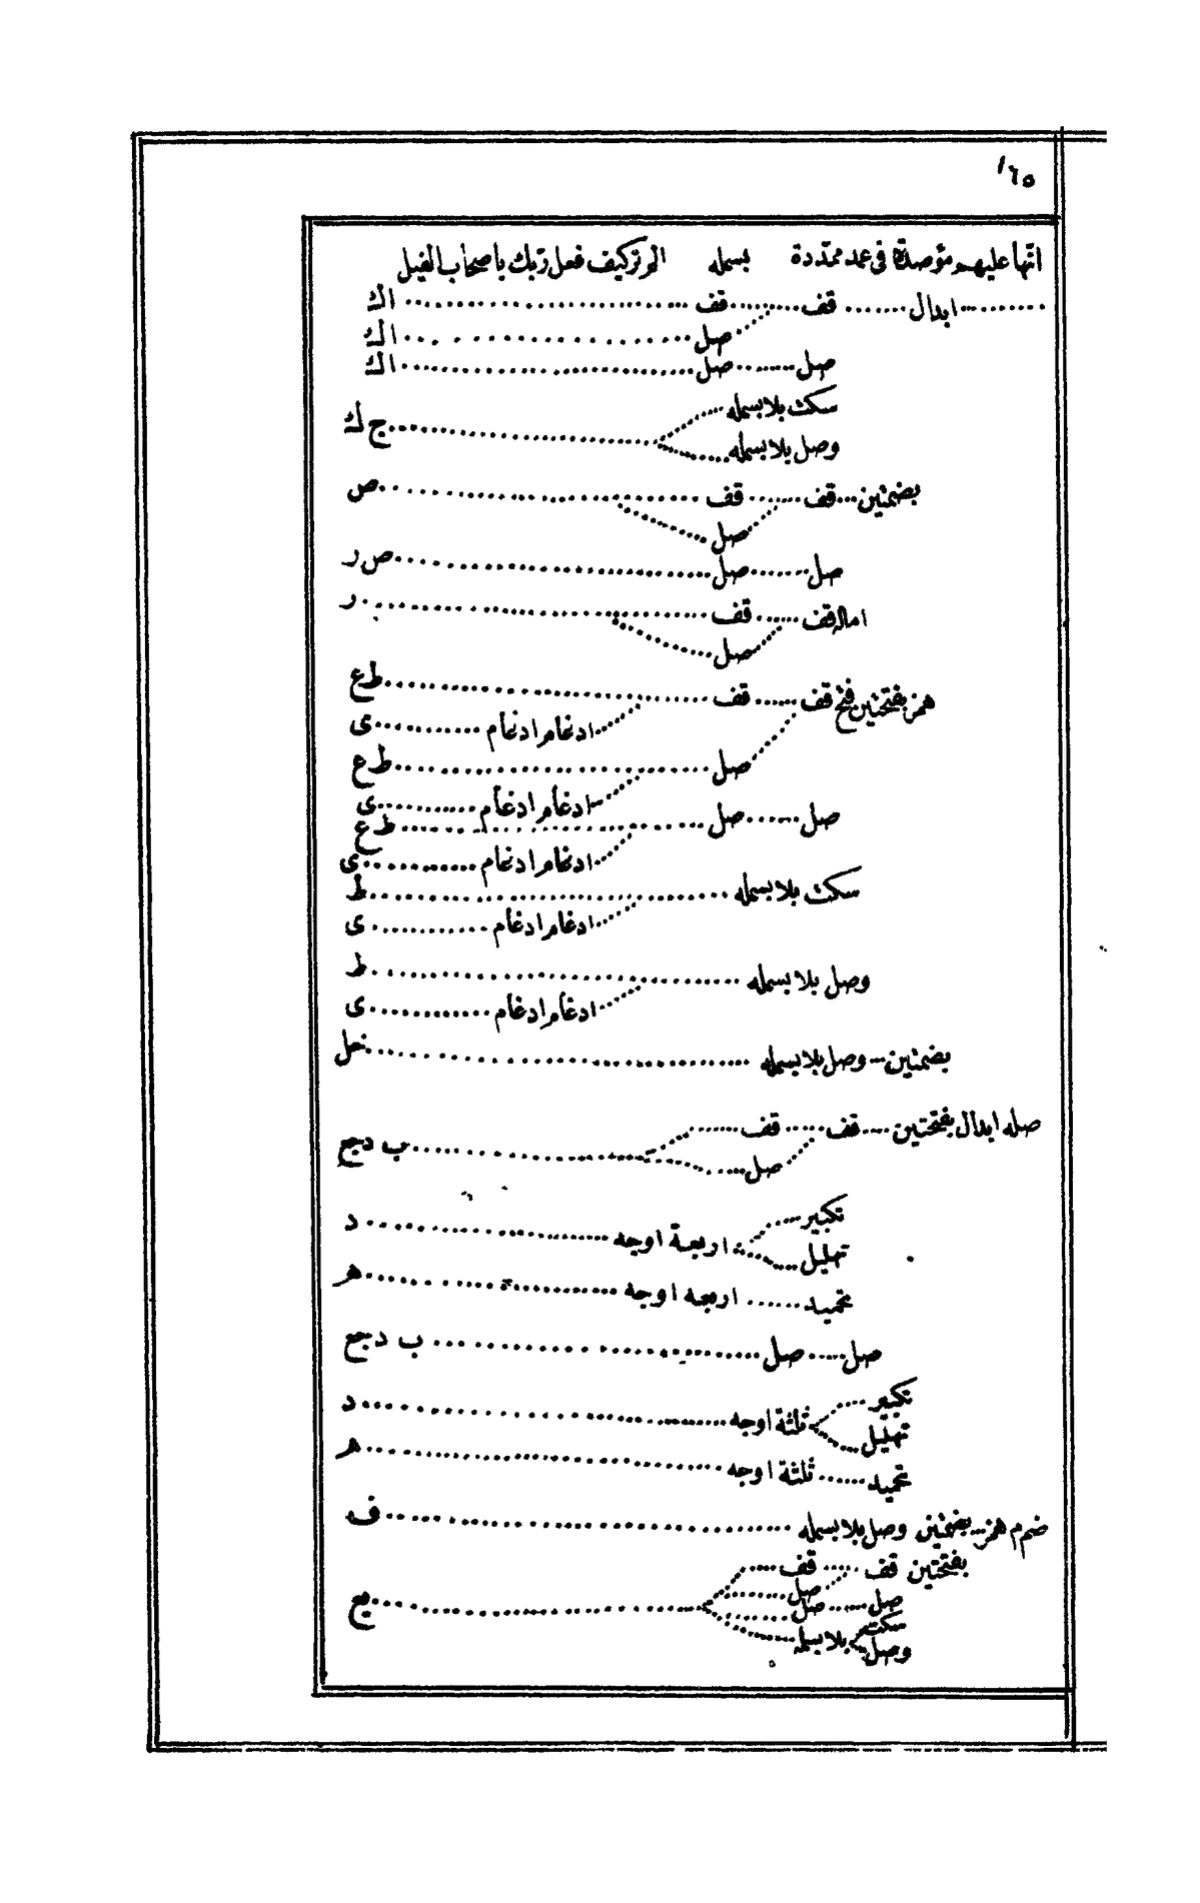 ١٦٥
انّها عليهم مؤصدة فى عمد ممدّدة بسمله الم تر كيف فعل ربك باصحاب الفيل
ابدال قف قف اك
صل اك
صل صل اك
سكت بلا بسمله
ج ك
وصل بلا بسمله
بضمتين قف قف ص
صل
صل صل ص ر
اماله قف قف ر
صل
همز بفتحتين فتح قف قف ط ع
ادغام ادغام ى
صل ط ع
ادغام ادغام ى
صل صل ط ع
ادغام ادغام ى
سكت بلا بسمله ط
ادغام ادغام ى
وصل بلا بسمله ط
ادغام ادغام ى
بضمتين وصل بلا بسمله خل
صله ابدال بفتحتين قف قف
ب د جع
صل
تكبير
اربعة اوجه د
تهليل
تحميد اربعه اوجه ه
صل صل ب د جع
تكبير
ثلثة اوجه د
تهليل
تحميد ثلثة اوجه ه
ضم م همز بضمتين وصل بلا بسمله ف
بفتحتين قف قف
صل
صل صل
سكت
بلا بسمله
وصل